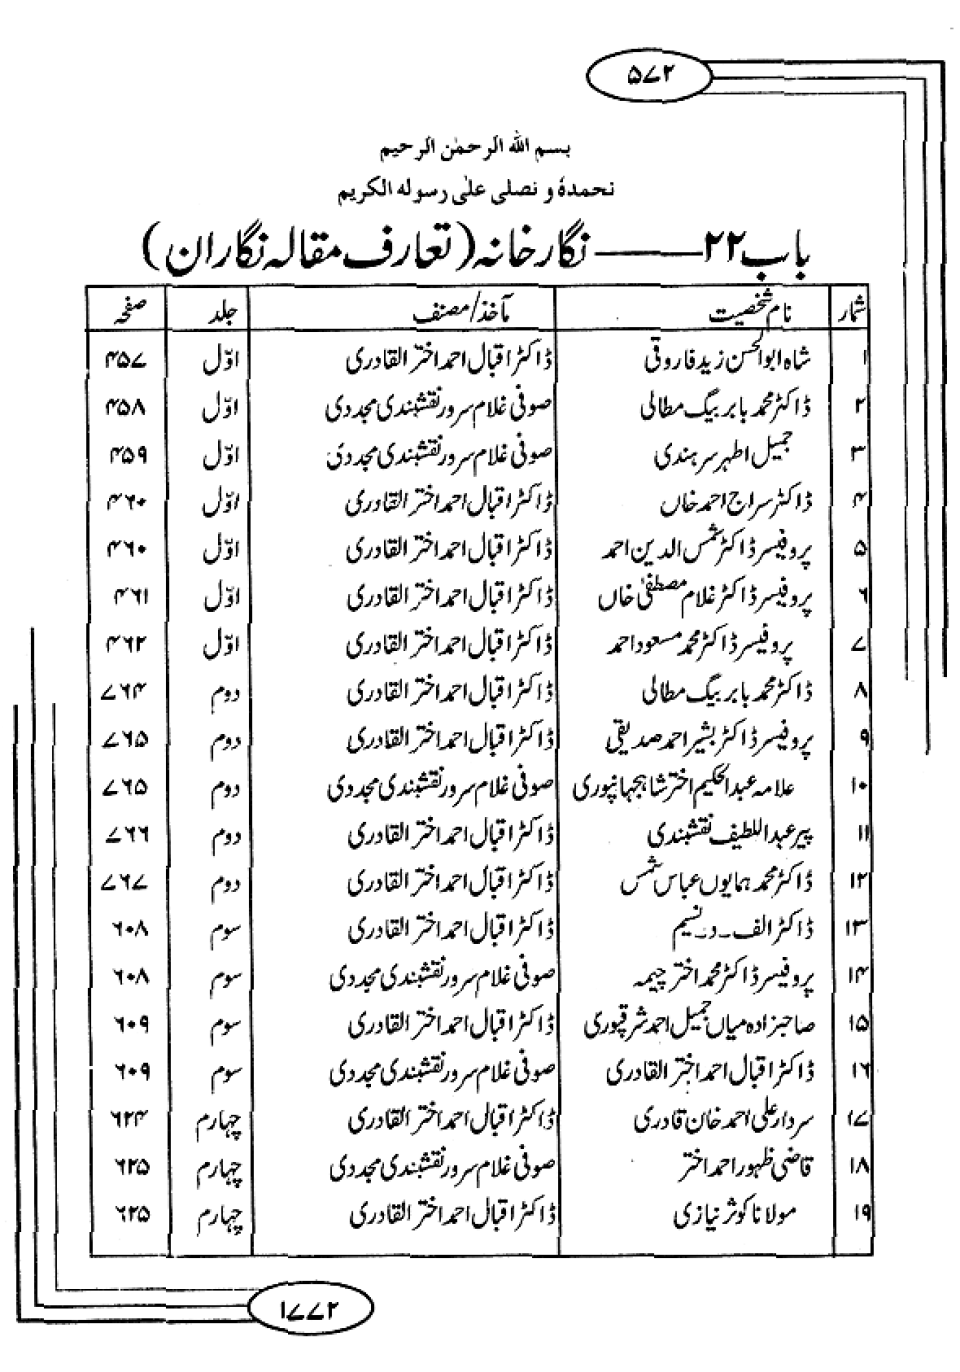 ۵۷۲
بسم اللہ الرحمٰن الرحیم
نحمدہٗ و نصلی علیٰ رسولہ الکریم
باب ۲۲ —— نگارخانہ (تعارف مقالہ نگاران)
شمار نام شخصیت مآخذ/مصنف جلد صفحہ
۱ شاہ ابوالحسن زید فاروقی ڈاکٹر اقبال احمد اختر القادری اوّل ۴۵۷
۲ ڈاکٹر محمد بابر بیگ مطالی صوفی غلام سرور نقشبندی مجددی اوّل ۴۵۸
۳ جمیل اطہر سرہندی صوفی غلام سرور نقشبندی مجددی اوّل ۴۵۹
۴ ڈاکٹر سراج احمد خاں ڈاکٹر اقبال احمد اختر القادری اوّل ۴۶۰
۵ پروفیسر ڈاکٹر شمس الدین احمد ڈاکٹر اقبال احمد اختر القادری اوّل ۴۶۰
۶ پروفیسر ڈاکٹر غلام مصطفیٰ خاں ڈاکٹر اقبال احمد اختر القادری اوّل ۴۶۱
۷ پروفیسر ڈاکٹر محمد مسعود احمد ڈاکٹر اقبال احمد اختر القادری اوّل ۴۶۲
۸ ڈاکٹر محمد بابر بیگ مطالی ڈاکٹر اقبال احمد اختر القادری دوم ۷۶۴
۹ پروفیسر ڈاکٹر بشیر احمد صدیقی ڈاکٹر اقبال احمد اختر القادری دوم ۷۶۵
۱۰ علامہ عبدالحکیم اختر شاہجہانپوری صوفی غلام سرور نقشبندی مجددی دوم ۷۶۵
۱۱ پیر عبداللطیف نقشبندی ڈاکٹر اقبال احمد اختر القادری دوم ۷۶۶
۱۲ ڈاکٹر محمد ہمایوں عباس شمس ڈاکٹر اقبال احمد اختر القادری دوم ۷۶۷
۱۳ ڈاکٹر الف۔د۔نسیم ڈاکٹر اقبال احمد اختر القادری سوم ۶۰۸
۱۴ پروفیسر ڈاکٹر محمد اختر چیمہ صوفی غلام سرور نقشبندی مجددی سوم ۶۰۸
۱۵ صاحبزادہ میاں جمیل احمد شرقپوری ڈاکٹر اقبال احمد اختر القادری سوم ۶۰۹
۱۶ ڈاکٹر اقبال احمد اختر القادری صوفی غلام سرور نقشبندی مجددی سوم ۶۰۹
۱۷ سردار علی احمد خان قادری ڈاکٹر اقبال احمد اختر القادری چہارم ۶۲۴
۱۸ قاضی ظہور احمد اختر صوفی غلام سرور نقشبندی مجددی چہارم ۶۲۵
۱۹ مولانا کوثر نیازی ڈاکٹر اقبال احمد اختر القادری چہارم ۶۲۵
۱۷۷۲